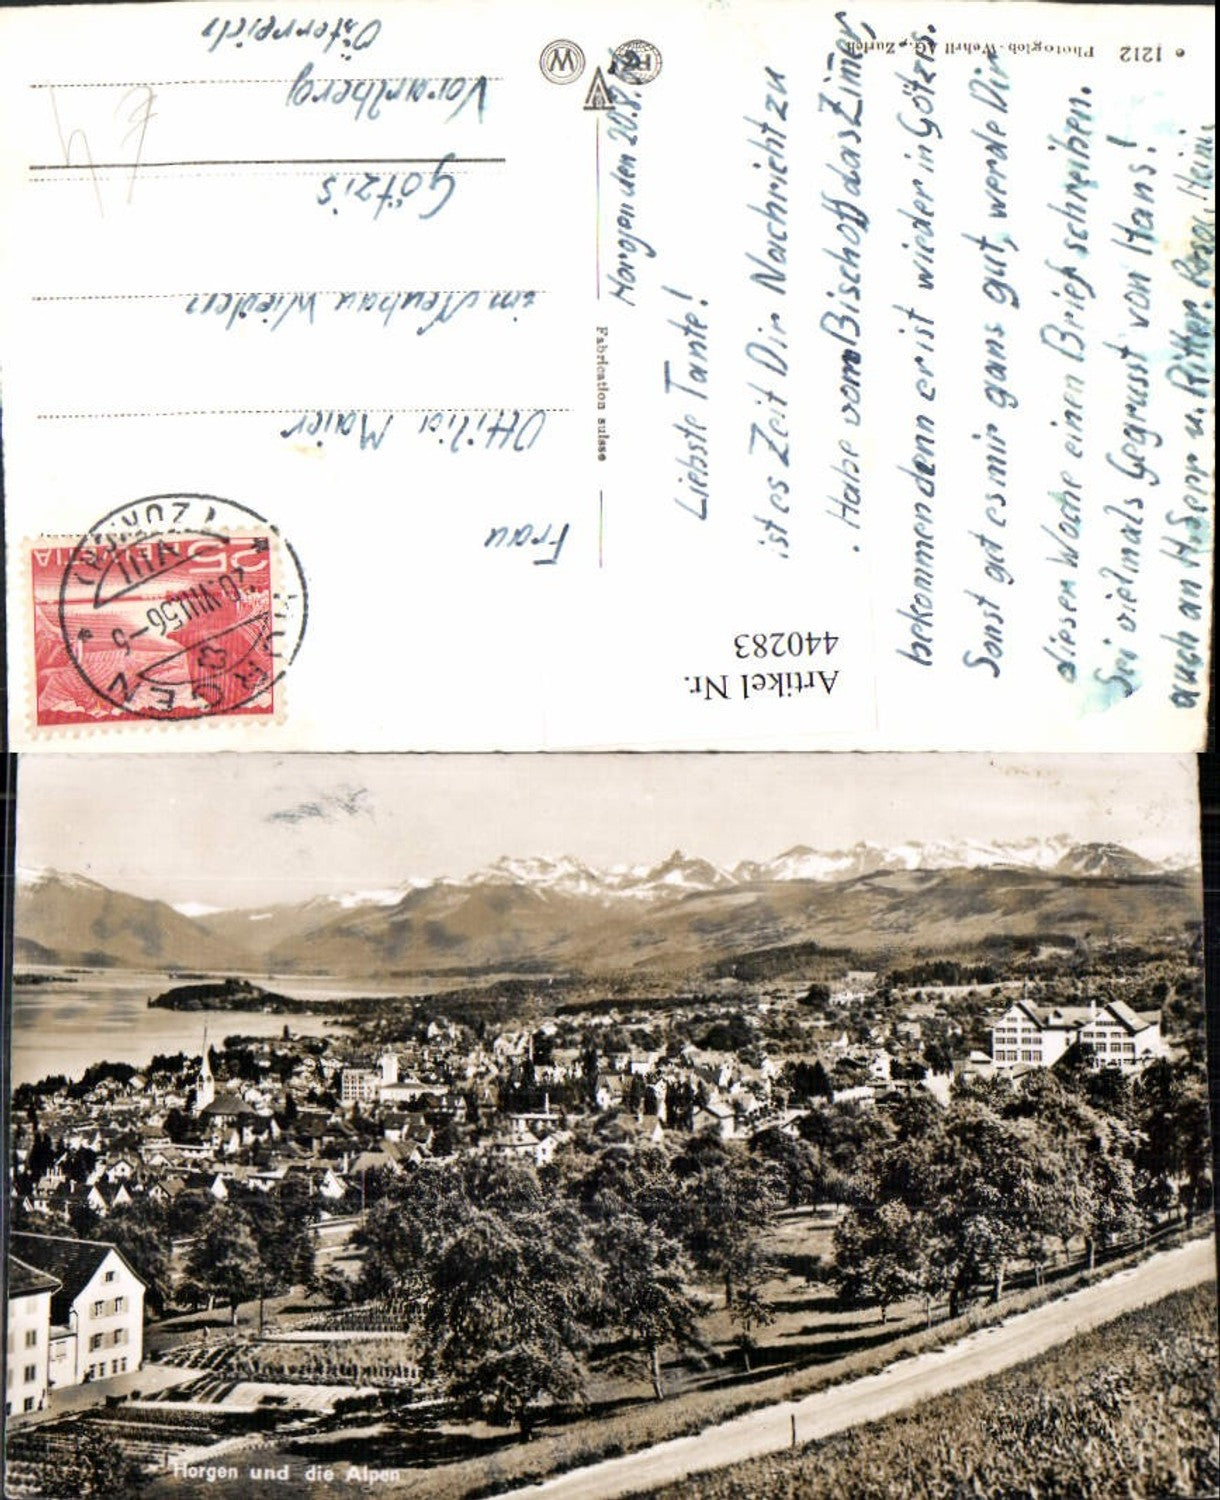 • 1212 Photoglob-Wehrli AG., Zürich
Fabrication suisse
Horgen den 20.8.
Liebste Tante!
ist es Zeit Dir Nachricht zu
. Habe vom Bischoff das Zimer,
bekommen denn er ist wieder in Götzis.
Sonst get es mir gans gut, werde Dir
diesen Woche einen Brief schreiben.
Sei vielmals Gegrüsst von Hans!
auch an u. Ritter. Rosa, Heini
HORGEN
(ZÜRICH)
20.VIII.56-5
HELVETIA 25
Frau
Ottilia Maier
im Neubau Wieden
Götzis
Vorarlberg
Österreich
47
Artikel Nr.
440283
Horgen und die Alpen